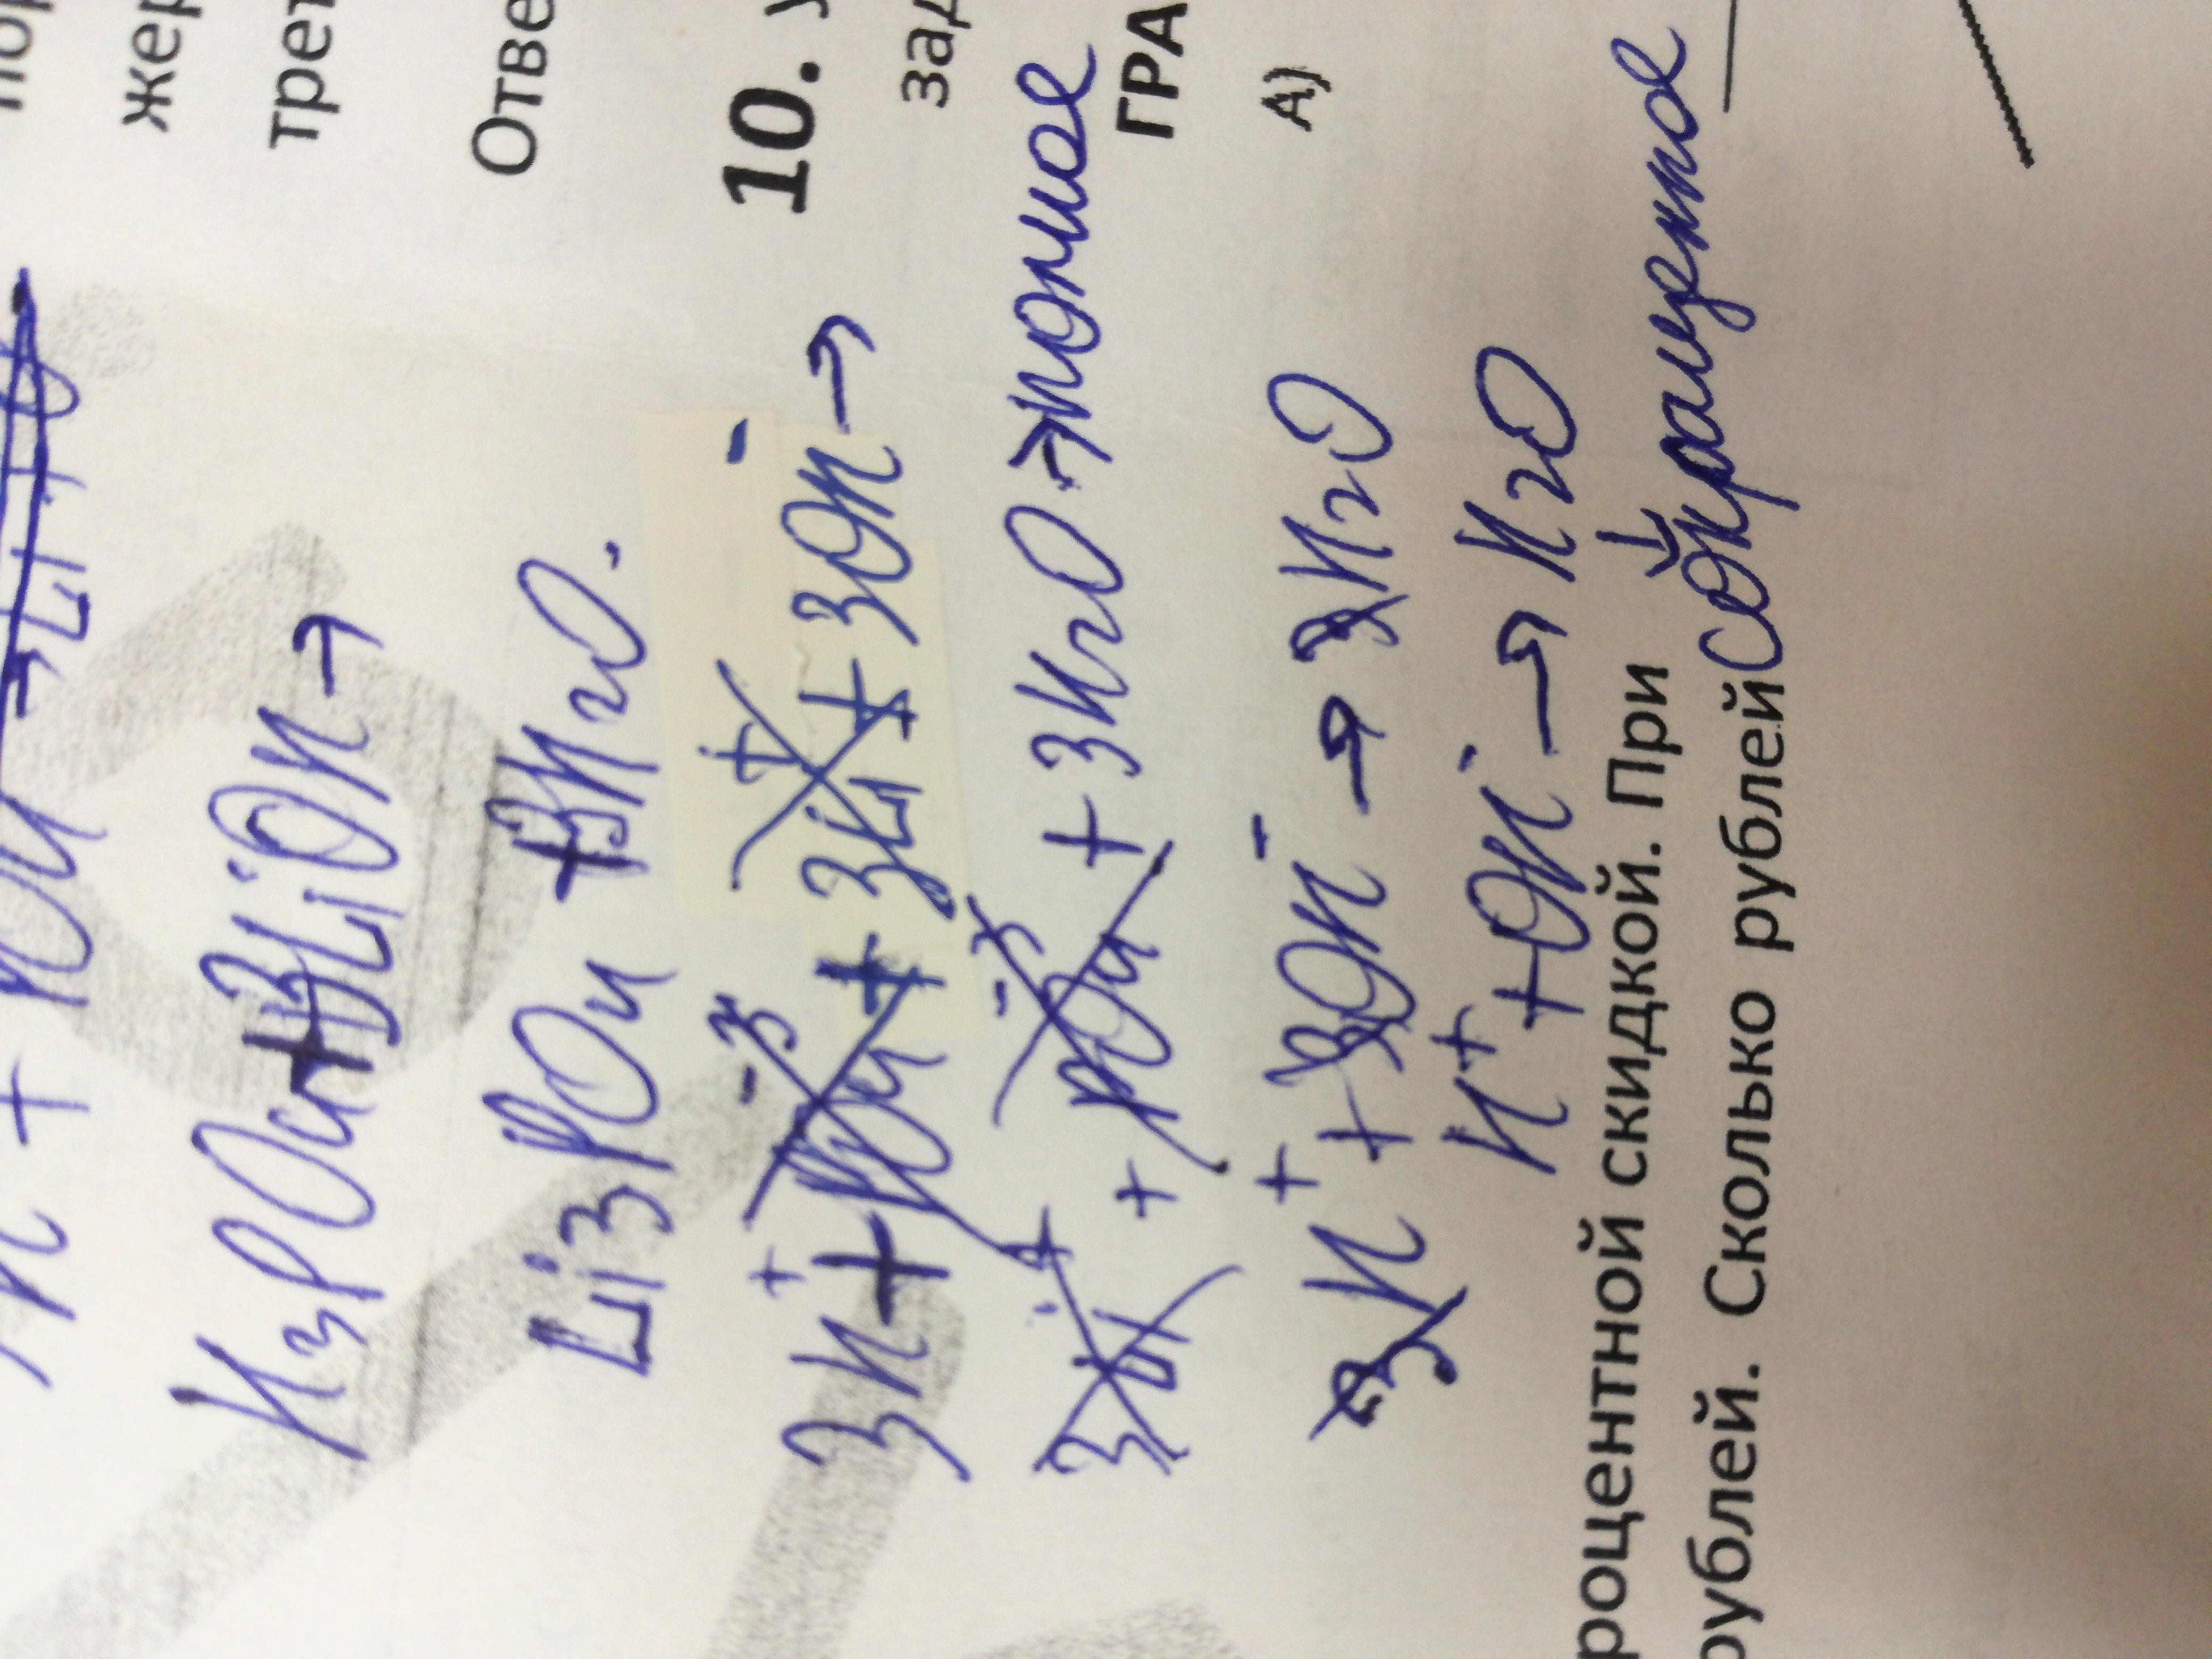 Н + ОН
H₃PO₄ + 3LiOH →
Li₃PO₄ + 3H₂O.
3H⁺ + PO₄⁻³ + 3Li⁺ + 3OH⁻ →
3Li⁺ + PO₄⁻³ + 3H₂O → полное
3H⁺ + 3OH⁻ → 3H₂O
H⁺ + OH⁻ → H₂O
↓
сокращенное
жер
трет
Отве
10. У
зад
ГРА
А)
роцентной скидкой. При
рублей. Сколько рублей